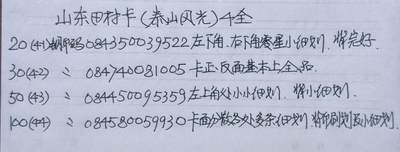 山东田村卡(泰山风光)4全
20(4-1)捆码084350039522左下角、右下角零星小细划,背完好.
30(4-2) 〃 084740081005卡正、反面基本上全品.
50(4-3) 〃 084450095359左上角处小小细划,背小细划.
100(4-4) 〃 084580059930卡面分散各处多条细划,背 划及小细划.